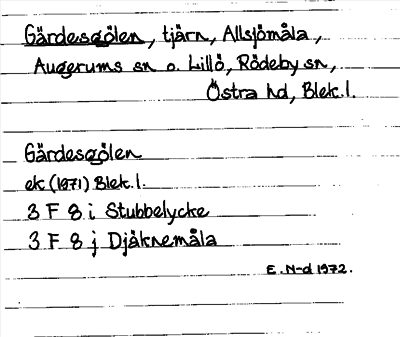 Gärdesgölen, tjärn, Allsjömåla,
Augerums sn o. Lillö, Rödeby sn,
Östra hd, Blek.l.
Gärdesgölen
ek (1971) Blek.l.
3 F 8 i Stubbelycke
3 F 8 j Djäknemåla
E. N-d 1972.